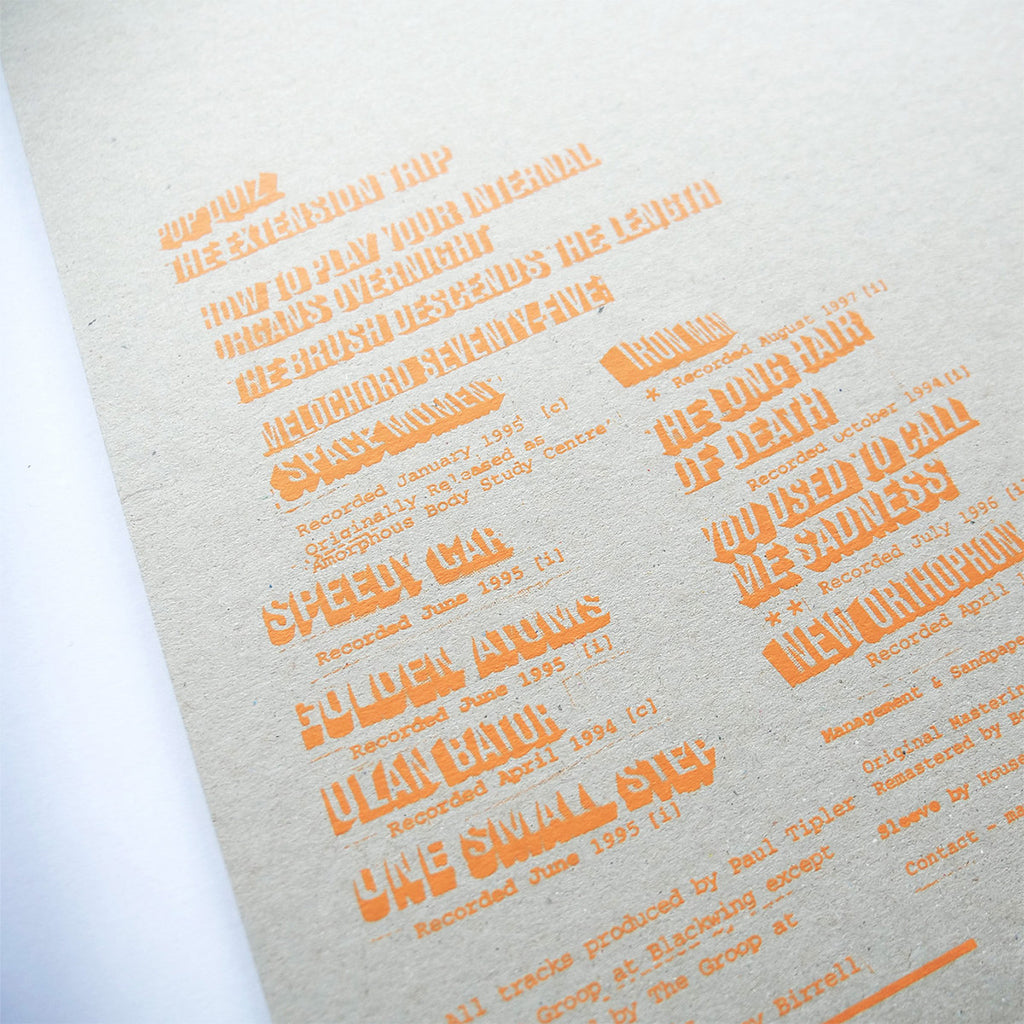 POP QUIZ
THE EXTENSION TRIP
HOW TO PLAY YOUR INTERNAL
ORGANS OVERNIGHT
THE BRUSH DESCENDS THE LENGTH
MELOCHORD SEVENTY-FIVE
SPACE WOMEN
Recorded January 1995 [c]
Originally Released as
'Amorphous Body Study Centre'
SPEEDY CAR
Recorded June 1995 [i]
GOLDEN ATOMS
Recorded June 1995 [i]
ULAN BATOR
Recorded April 1994 [c]
ONE SMALL STEP
Recorded June 1995 [i]
IRON MAN
* Recorded August 1997 [i]
THE LONG HAIR
OF DEATH
Recorded October 1994 [i]
YOU USED TO CALL
ME SADNESS
** Recorded July 1996 [i]
NEW ORTHOPHONI
Recorded April
Management & Sandpape
Original Masterin
Remastered by Bo
Sleeve by House
Contact - ma
All tracks produced by Paul Tipler
Groop at Blackwing except
by The Groop at
y Birrell